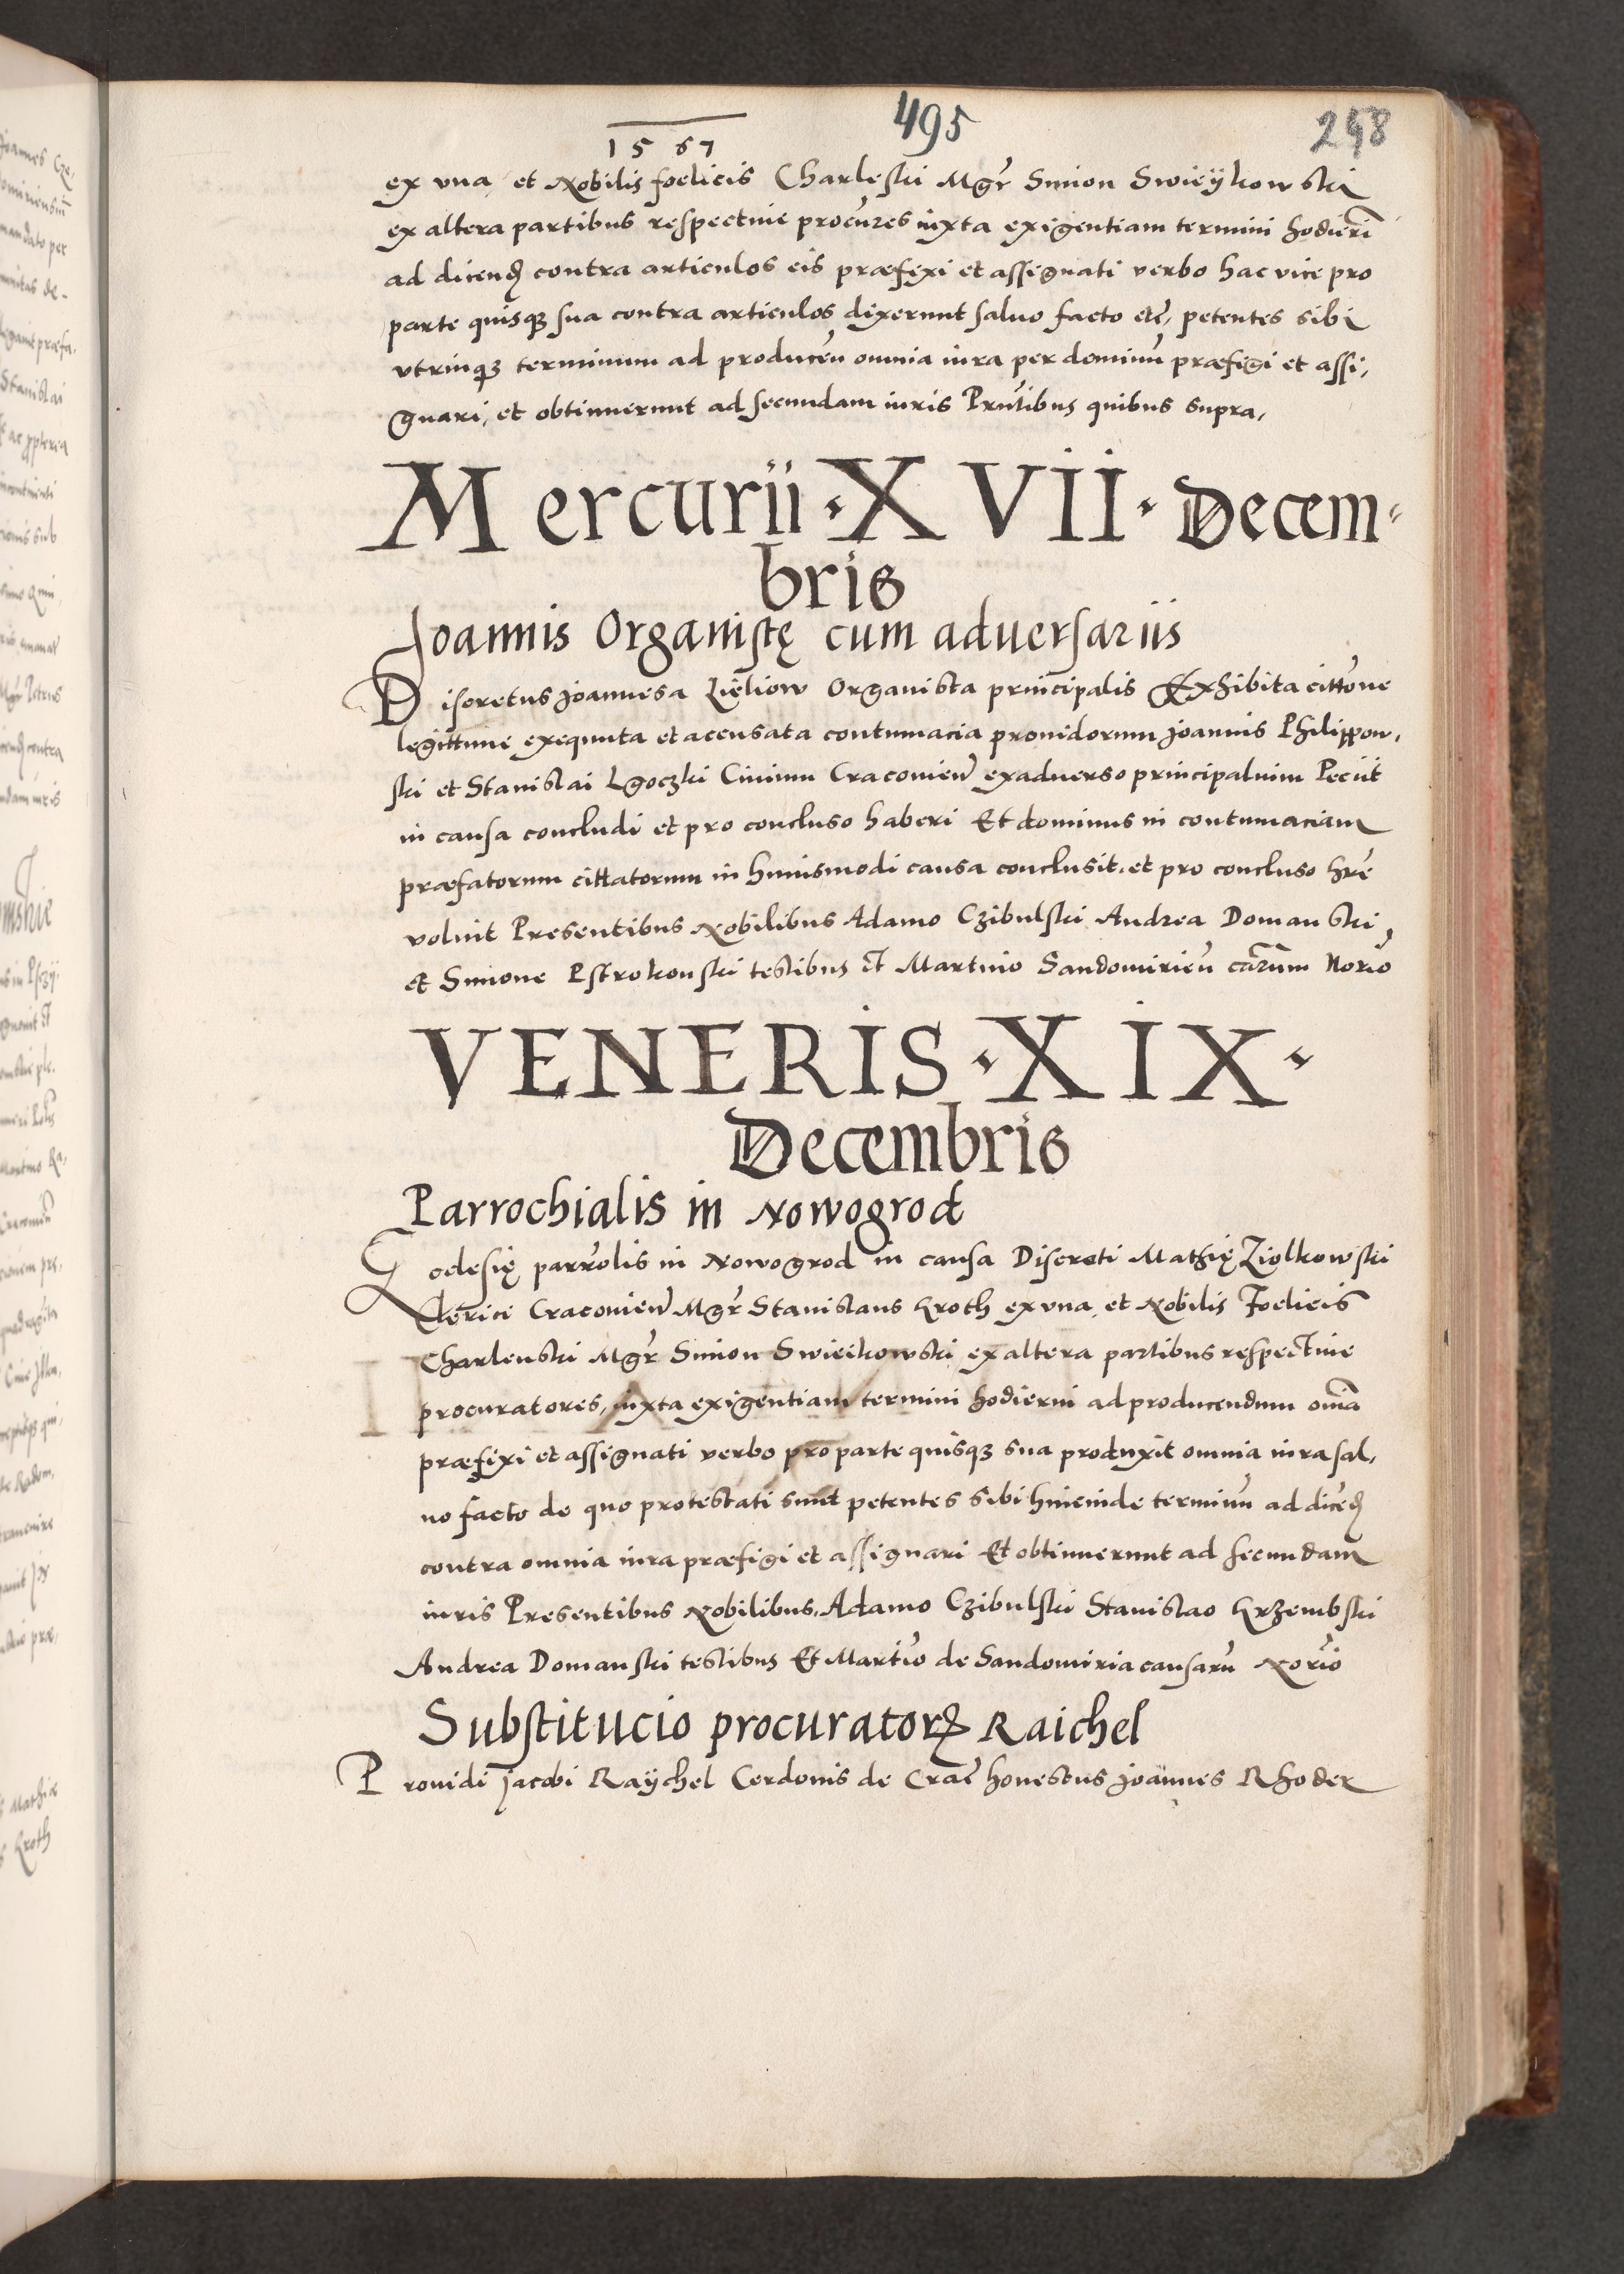 495
248
1567
ex vna et Nobilis foelicis Charleski Mgr̃ Simon Swieÿkowski
ex altera partibus respectiue procũres iuxta exigentiam termini hodierñi
ad dicenđ contra articulos eis præfixi et assignati verbo hac vice pro
parte quisqȝ sua contra articulos dixerunt saluo facto etc̃, petentes sibi
vtrinqȝ terminum ad producen̄ omnia iura per dominū præfigi et assi,
gnari, et obtinuerunt ad secundam iuris Prñtibus quibus supra,
Mercurii · XVII · Decem-
bris
Joannis Organistę cum aduersariis
Discretus Joannes a Organista principalis Exhibita cittõne
legittime exequuta et accusata contumacia prouidorum Joannis Philippow,
ski et Stanislai Lgoczki Ciuium Cracouień exaduerso principalium Peciit
in causa concludi et pro concluso haberi Et dominus in contumaciam
præfatorum cittatorum in huiusmodi causa conclusit. et pro concluso hr̃e
voluit Presentibus Nobilibus Adamo Czibulski Andrea Domanski,
et Simone Pstrokonski testibus et Martino Sandomirień cãrum Norio
VENERIS · XIX ·
Decembris
Parrochialis in Nowogrod
Ecclesię parrõlis in Nowogrod in causa Discreti Mathię Ziolkowski
Clerici Cracouień Mgr̃ Stanislaus Kroth ex vna et Nobilis Foelicis
Charlenski Mgr̃ Simon Swieikowski ex altera partibus respectiue
procuratores, iuxta exigentiam termini hodierni ad producendum om̃ia
præfixi et assignati verbo pro parte quisqȝ sua produxit omnia iura sal,
uo facto de quo protestati sunt petentes sibi hincinde terminū ad dicẽđ
contra omnia iura præfigi et assignari Et obtinuerunt ad secundam
iuris Presentibus Nobilibus. Adamo Czibulski Stanislao Krzembski
Andrea Domanski testibus Et Martĩo de Sandomiria causarū Norĩo
Substitucio procuratorꝝ Raichel
Prouidi Jacobi Raÿchel Cerdonis de Crac̃ honestus Joannes Rhoder